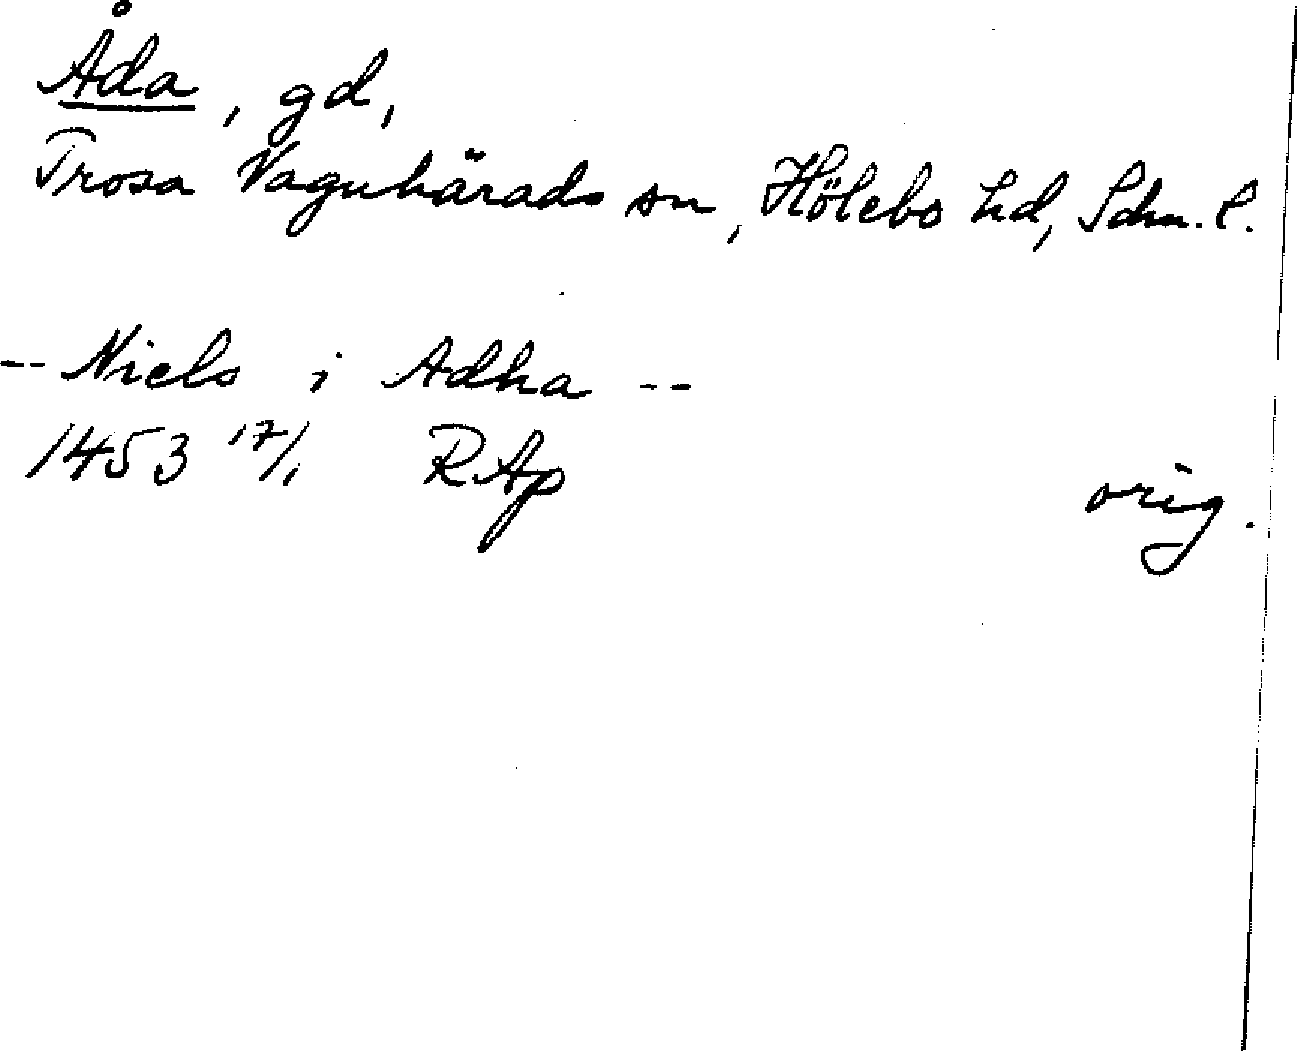 Åda, gd,
Trosa Vagnhärads sn, Hölebo hd, Sdm. l.
-- Niels i Adha --
1453 17/1 RAp
orig.